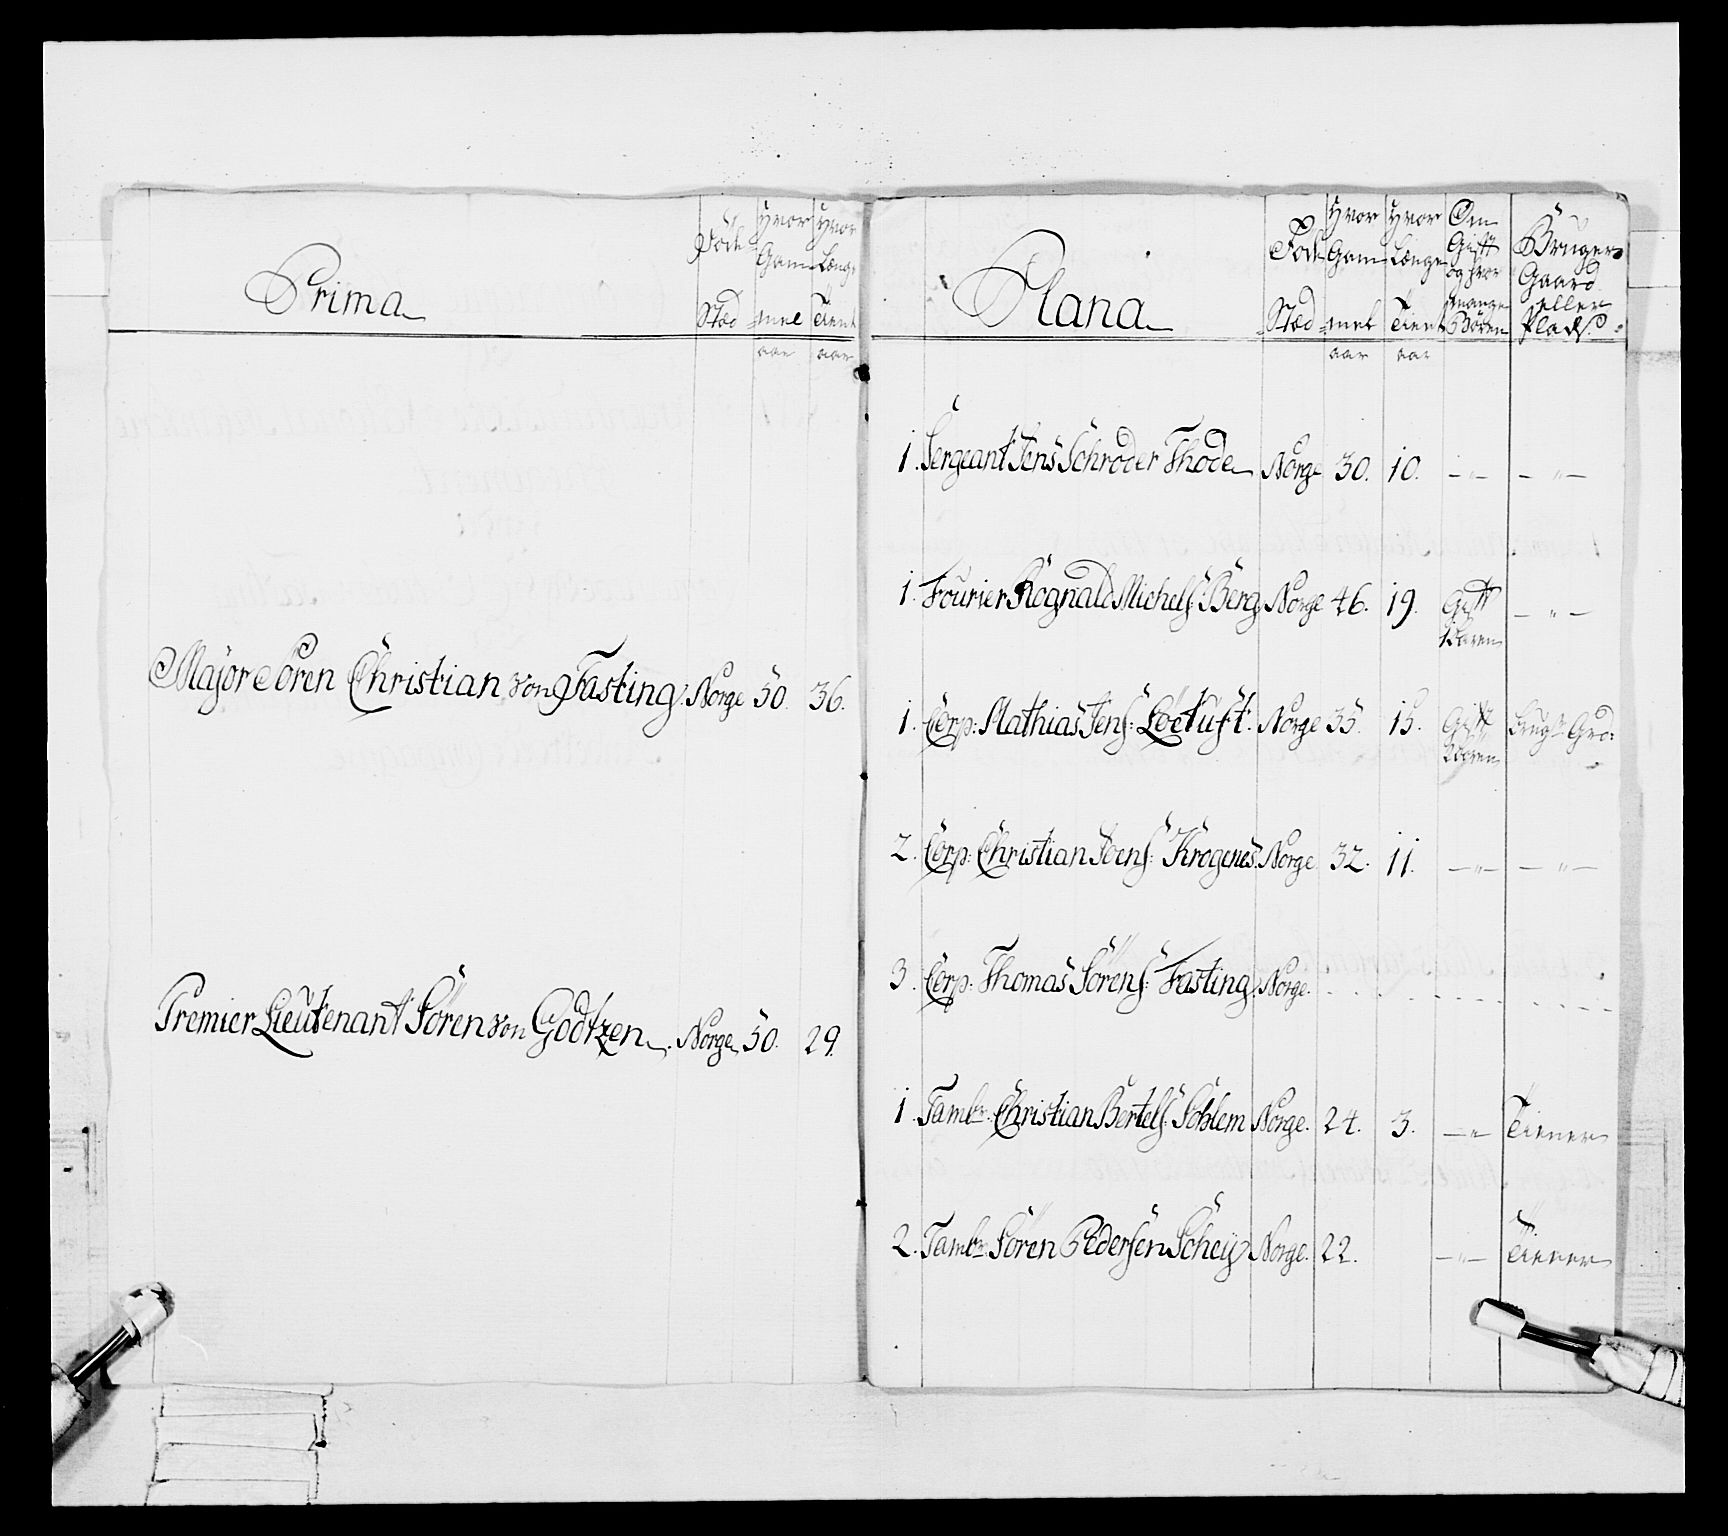 Prima
Föde Stæd
Hvor Gammel
Hvor Længe Tient
aar aar
Major Sören Christian von Fasting. Norge 50. 36.
Premier Lieutenant Sören von Godtzen. Norge 50. 29.
Plana
Föde Stæd
Hvor Gammel
Hvor Længe Tient
Om Gift og hvor mange Bören
Bruger Gaard eller Plads.
aar aar
1. Sergeant Jens Schroder Thode Norge 30. 10. — " — — " —
1. Fourier Rognald Michels: Berg Norge 46. 19. Gift — " —
1. Corp: Mathias Jens: Norge 35. 15. Gift
2. Corp: Christian Joens: Krogenes. Norge 32. 11. — " — — " —
3. Corp: Thomas Sörens: Fasting. Norge.
1. Tambr: Christian Bertels: Sohlem Norge. 24. 3. — " Tiener
2. Tambr: Sören Pedersen Schey Norge. 22. — " — Tiener